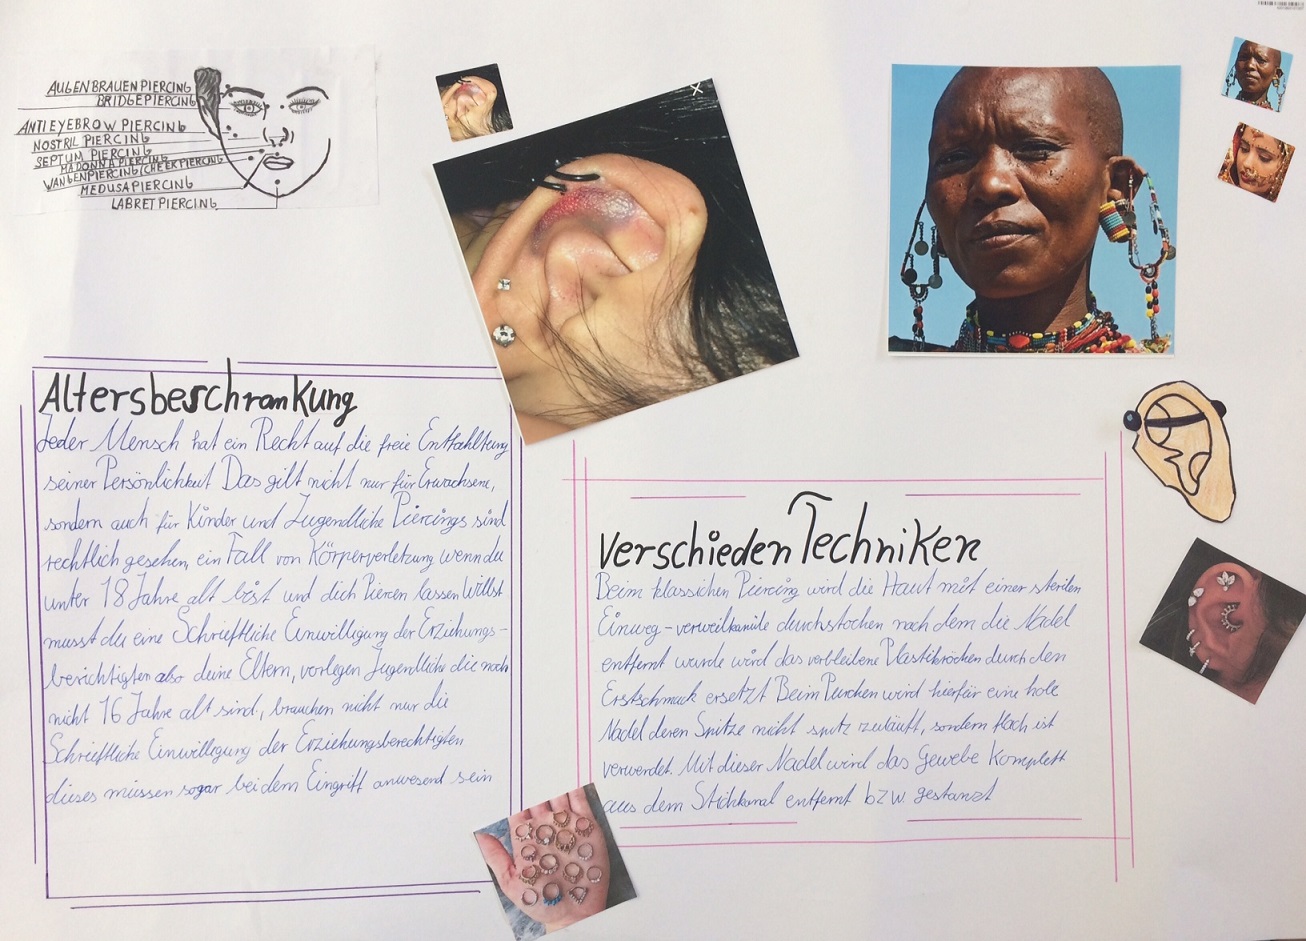 AUGENBRAUENPIERCING
BRIDGEPIERCING
ANTIEYEBROW PIERCING
NOSTRIL PIERCING
SEPTUM PIERCING
MADONNAPIERCING
WANGENPIERCING/CHEEKPIERCING
MEDUSAPIERCING
LABRETPIERCING
Altersbeschrankung
Jeder Mensch hat ein Recht auf die freie Entfahltung
seiner Persönlichkeit Das gilt nicht nur für Erwachsene,
sondern auch für Kinder und Jugendliche Piercings sind
rechtlich gesehen, ein Fall von Körperverletzung wenn du
unter 18 Jahre alt bist und dich Piercen lassen willst
musst du eine Schrieftliche Einwilligung der Erziehungs-
berichtigten also deine Eltern, vorlegen Jugendliche die noch
nicht 16 Jahre alt sind, brauchen nicht nur die
Schrieftliche Einwillegung der Erziehungsberechtigten
dieses müssen sogar bei dem Eingriff anwesend sein
Verschieden Techniken
Beim klassichen Piercing wird die Haut mit einer sterilen
Einweg-verweilkanüle durchstochen nach dem die Nadel
entfernt wurde wird das verbleibene Plastikröchen durch den
Erstschmuck ersetzt Beim Punchen wird hierfür eine hole
Nadel deren Spitze nicht spitz zuläuft, sondern flach ist
verwendet. Mit dieser Nadel wird das Gewebe Komplett
aus dem Stichkanal entfernt bzw. gestanzt